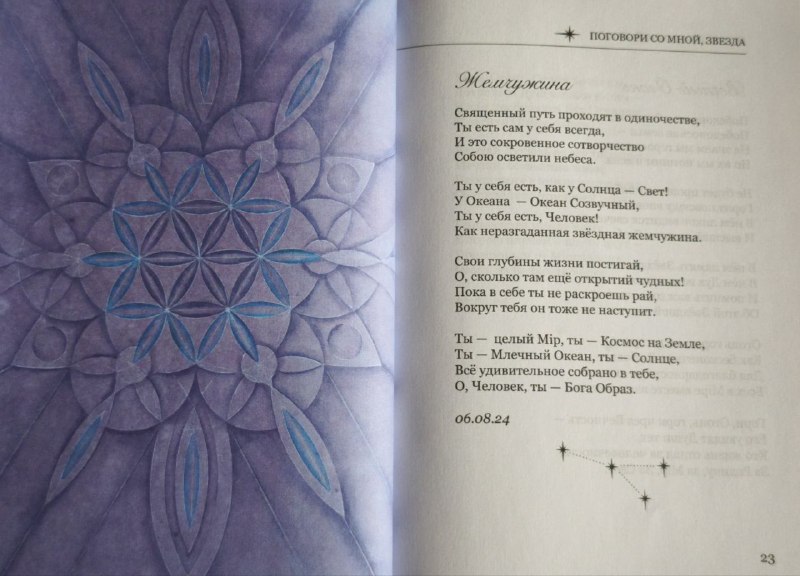 ПОГОВОРИ СО МНОЙ, ЗВЕЗДА
Жемчужина
Священный путь проходят в одиночестве,
Ты есть сам у себя всегда,
И это сокровенное сотворчество
Собою осветили небеса.
Ты у себя есть, как у Солнца — Свет!
У Океана — Океан Созвучный,
Ты у себя есть, Человек!
Как неразгаданная звёздная жемчужина.
Свои глубины жизни постигай,
О, сколько там ещё открытий чудных!
Пока в себе ты не раскроешь рай,
Вокруг тебя он тоже не наступит.
Ты — целый Мір, ты — Космос на Земле,
Ты — Млечный Океан, ты — Солнце,
Всё удивительное собрано в тебе,
О, Человек, ты — Бога Образ.
06.08.24
23